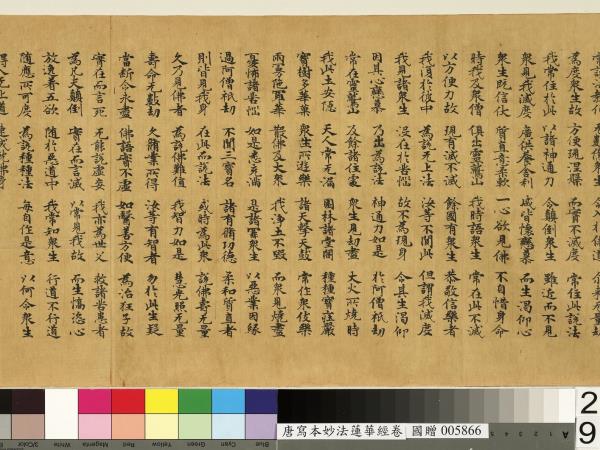 常說法教化 無數億衆生 令入於佛道 尒來无量劫
為度衆生故 方便現涅槃 而實不滅度 常住此說法
我常住於此 以諸神通力 令顛倒衆生 雖近而不見
衆見我滅度 廣供養舍利 咸皆懷戀慕 而生渴仰心
衆生既信伏 質直意柔軟 一心欲見佛 不自惜身命
時我及衆僧 俱出靈鷲山 我時語衆生 常在此不滅
以方便力故 現有滅不滅 餘國有衆生 恭敬信樂者
我復於彼中 為說无上法 汝等不聞此 但謂我滅度
我見諸衆生 沒在於苦惱 故不為現身 令其生渴仰
因其心戀慕 乃出為說法 神通力如是 於阿僧祇劫
常在靈鷲山 及餘諸住處 衆生見劫盡 大火所燒時
我此土安隱 天人常充滿 園林諸堂閣 種種寶莊嚴
寶樹多華菓 衆生所遊樂 諸天擊天鼓 常作衆伎樂
雨曼陀羅華 散佛及大衆 我淨土不毀 而衆見燒盡
憂怖諸苦惱 如是悉充滿 是諸罪衆生 以惡業因緣
過阿僧祇劫 不聞三寶名 諸有脩功德 柔和質直者
則皆見我身 在此而說法 或時為此衆 說佛壽无量
久乃見佛者 為說佛難值 我智力如是 慧光照无量
壽命无數劫 久脩業所得 汝等有智者 勿於此生疑
當斷令永盡 佛語實不虛 如醫善方便 為治狂子故
實在而言死 无能說虛妄 我亦為世父 救諸苦患者
為凡夫顛倒 實在而言滅 以常見我故 而生憍恣心
放逸著五欲 墮於惡道中 我常知衆生 行道不行道
隨應所可度 為說種種法 每自作是意 以何令衆生
得入无上道 速成就佛身
3/Color
White
Magenta
Red
Yellow
Green
Cyan
Blue
唐寫本妙法蓮華經卷 國贈 005866
A
2
9